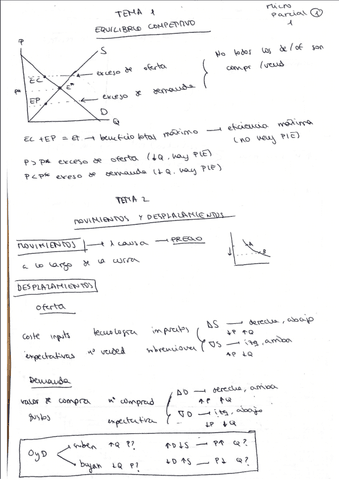 TEMA 1
EQUILIBRIO COMPETITIVO
Micro
Parcial 1
1
P
S
EC
exceso de oferta
P*
E*
EP
exceso de demanda
D
Q
No todos los de/of son
compr/vend
EC + EP = ET → beneficio total máximo → eficiencia máxima
(no hay PIE)
P > P* exceso de oferta (↓Q, hay PIE)
P < P* exceso de demanda (↓Q, hay PIE)
TEMA 2
MOVIMIENTOS Y DESPLAZAMIENTOS
MOVIMIENTOS → 1 causa → PRECIO
a lo largo de la curva
DESPLAZAMIENTOS
Oferta
coste inputs tecnología impuestos
expectativas nº vended subvenciones
ΔS → derecha, abajo
↓P ↑Q
∇S → izq, arriba
↑P ↓Q
Demanda
valor de compra nº comprad
gustos expectativa
ΔD → derecha, arriba
↑P ↑Q
∇D → izq, abajo
↓P ↓Q
O y D
suben ↑Q P?
bajan ↓Q P?
↑D ↓S → P↑ Q?
↓D ↑S → P↓ Q?